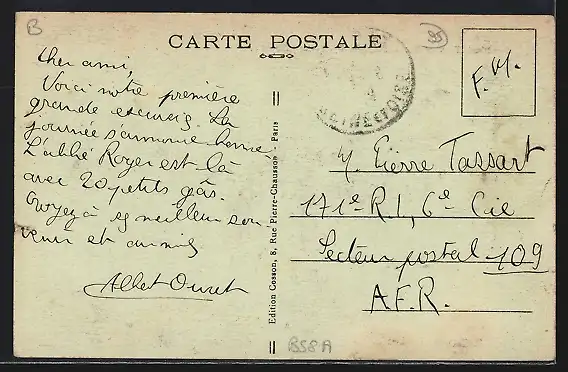 B
95
CARTE POSTALE
F.M.
SEINE & OISE
Cher ami,
Voici notre première
grande excursi. La
journée s'annonce bonne.
L'abbé Roger est là
avec 20 petits gâs.
Croyez à meilleur sou-
venir et amitiés
Albert
M. Pierre Tassart
171e R I, 6e Cie
Secteur postal 109
A.F.R.
Edition Cosson, 8, Rue Pierre-Chausson - Paris
B58A